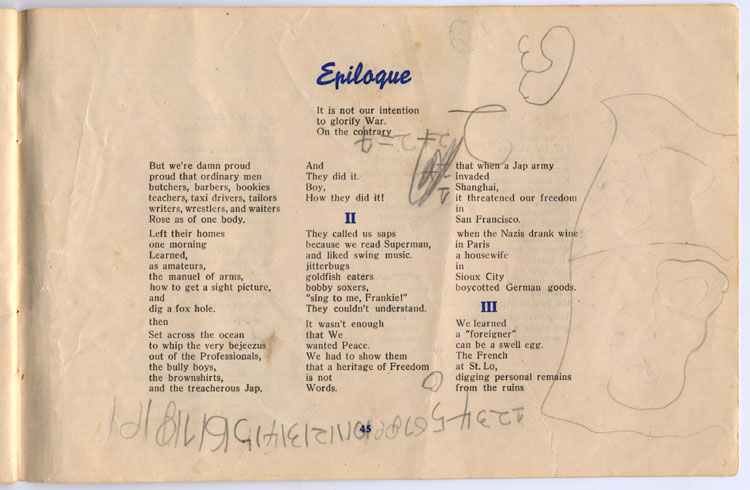 Epilogue
It is not our intention
to glorify War.
On the contrary
2+2=4
But we're damn proud
proud that ordinary men
butchers, barbers, bookies
teachers, taxi drivers, tailors
writers, wrestlers, and waiters
Rose as of one body.
Left their homes
one morning
Learned,
as amateurs,
the manuel of arms,
how to get a sight picture,
and
dig a fox hole.
then
Set across the ocean
to whip the very bejeezus
out of the Professionals,
the bully boys,
the brownshirts,
and the treacherous Jap.
And
They did it.
Boy,
How they did it!
II
They called us saps
because we read Superman,
and liked swing music.
jitterbugs
goldfish eaters
bobby soxers,
"sing to me, Frankie!"
They couldn't understand.
It wasn't enough
that We
wanted Peace.
We had to show them
that a heritage of Freedom
is not
Words.
that when a Jap army
invaded
Shanghai,
it threatened our freedom
in
San Francisco.
when the Nazis drank wine
in Paris
a housewife
in
Sioux City
boycotted German goods.
III
We learned
a "foreigner"
can be a swell egg.
The French
at St. Lo,
digging personal remains
from the ruins
45